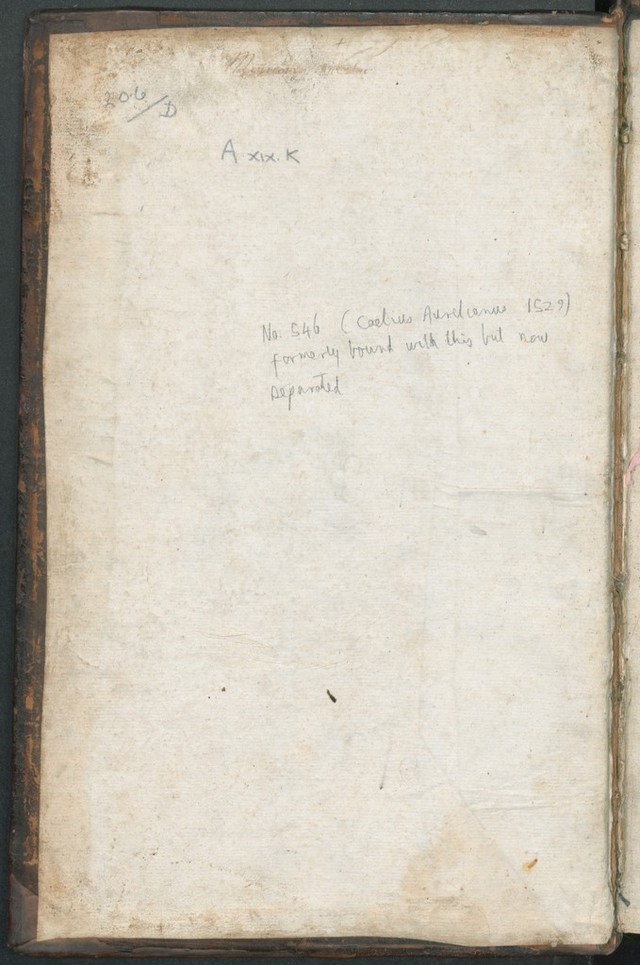 206/D
A XIX. K
No. 546 (Caelius Aurelianus 1529)
formerly bound with this but now
separated